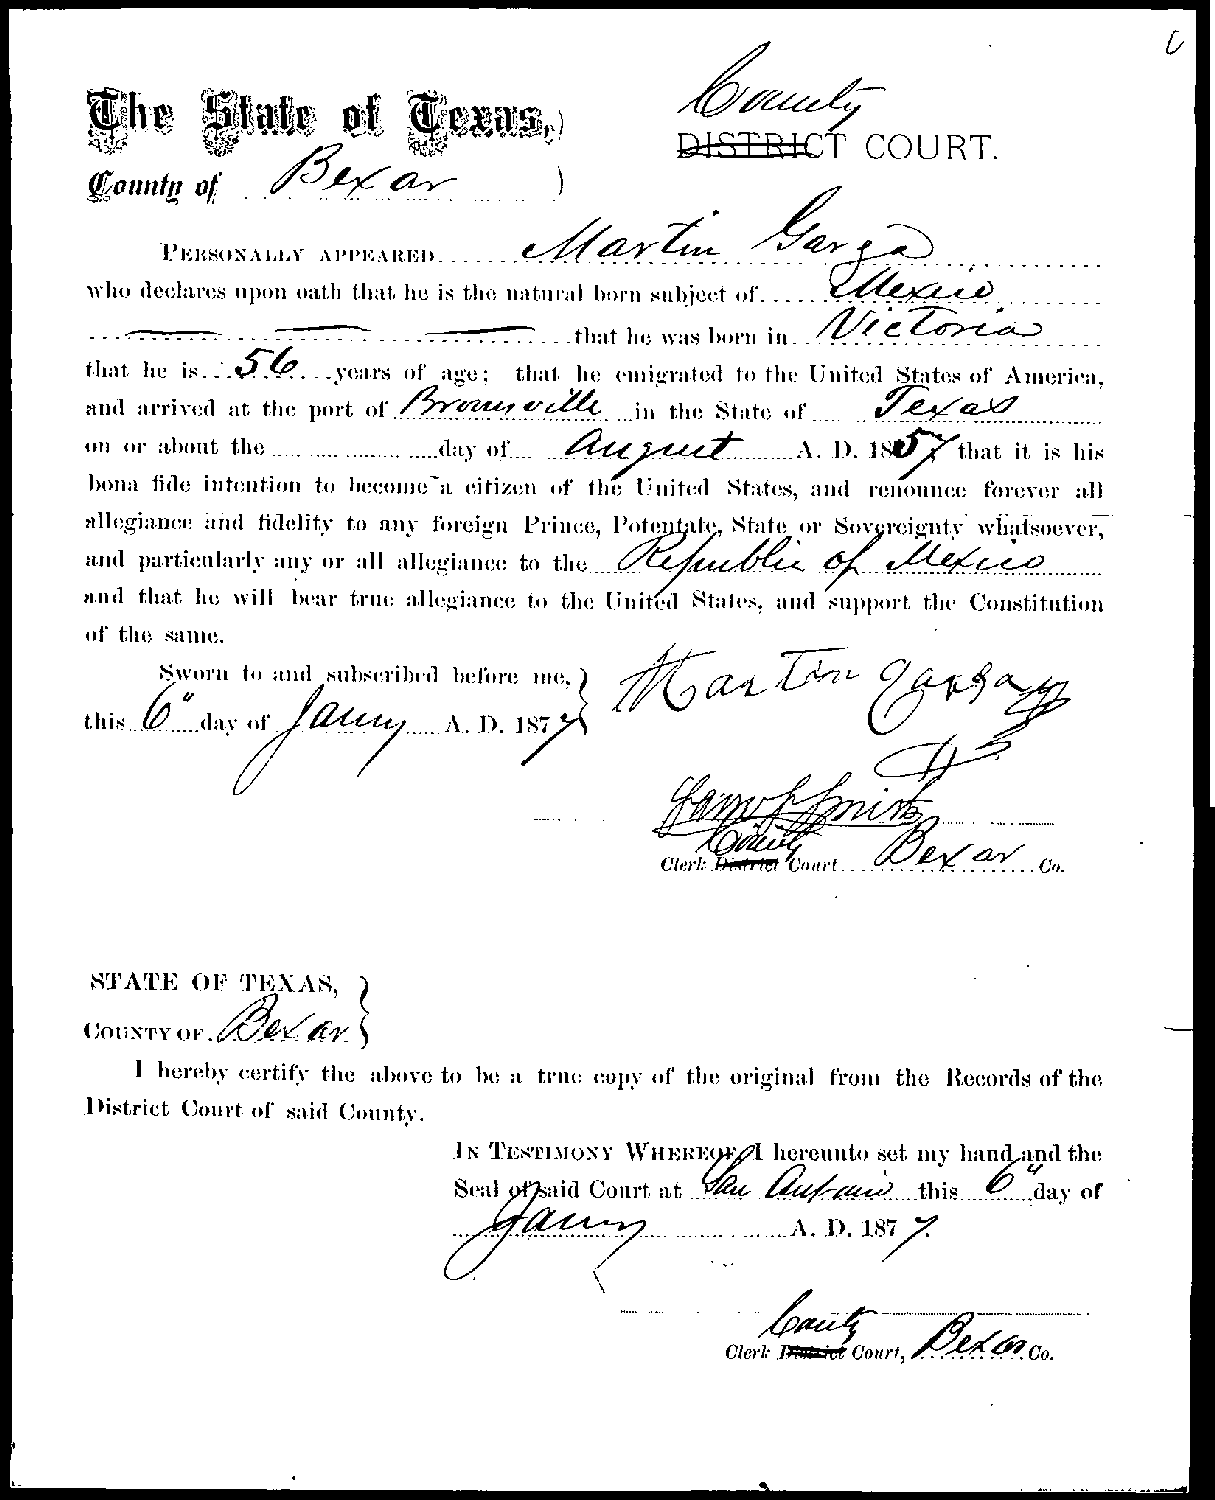 County
The State of Texas,
DISTRICT COURT.
County of Bexar
PERSONALLY APPEARED Martin Garza
who declares upon oath that he is the natural born subject of Mexico
that he was born in Victoria
that he is 56 years of age; that he emigrated to the United States of America,
and arrived at the port of Brownsville in the State of Texas
on or about the day of August A. D. 1857, that it is his
bona fide intention to become a citizen of the United States, and renounce forever all
allegiance and fidelity to any foreign Prince, Potentate, State or Sovereignty whatsoever,
and particularly any or all allegiance to the Republic of Mexico
and that he will bear true allegiance to the United States, and support the Constitution
of the same.
Sworn to and subscribed before me,
Martin Garza
this 6" day of Jany A. D. 1877
Smith
County
Clerk District Court Bexar Co.
STATE OF TEXAS,
COUNTY OF Bexar
I hereby certify the above to be a true copy of the original from the Records of the
District Court of said County.
IN TESTIMONY WHEREOF, I hereunto set my hand and the
Seal of said Court at San Antonio this 6" day of
Jany A. D. 1877.
County
Clerk District Court, Bexar Co.